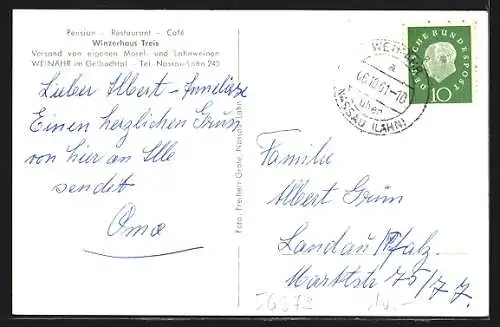 Pension - Restaurant - Café
Winzerhaus Treis
Versand von eigenen Mosel- und Lahnweinen
WEINÄHR im Gelbachtal - Tel. Nassau-Lahn 243
Lieber Albert - Anneliese
Einen herzlichen Gruss
von hier an Alle
sendet
Oma
Foto: Freiherr Grote, Nassau/Lahn
a
06.10.61-10
über
NASSAU (LAHN)
DEUTSCHE BUNDESPOST
10
Familie
Albert Grün
Landau/Pfalz
Marktstr 75/77.